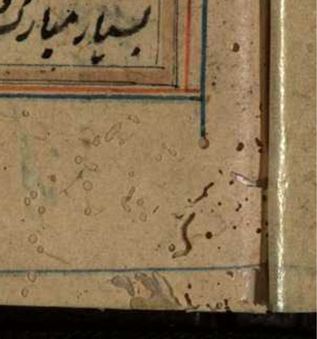 بسیار مبارک